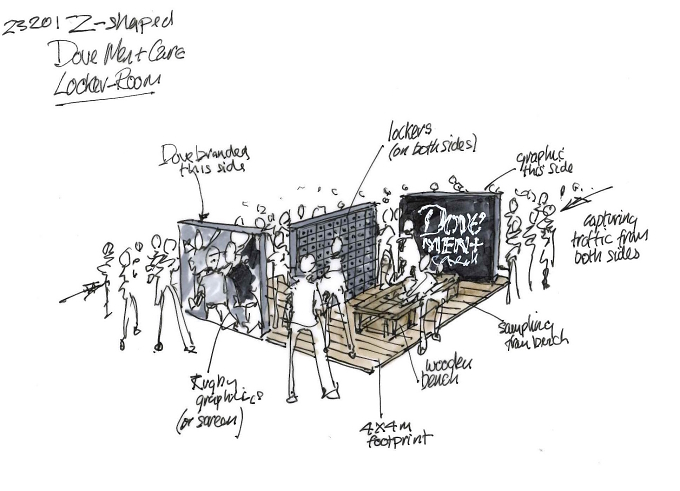 23201 Z-shaped
Dove Men+Care
Locker-Room
lockers
(on both sides)
Dove branded
this side
graphic
this side
capturing
traffic from
both sides
DOVE
MEN+
CARE
sampling
from bench
wooden
bench
Rugby
graphics
(or screen)
4x4m
footprint